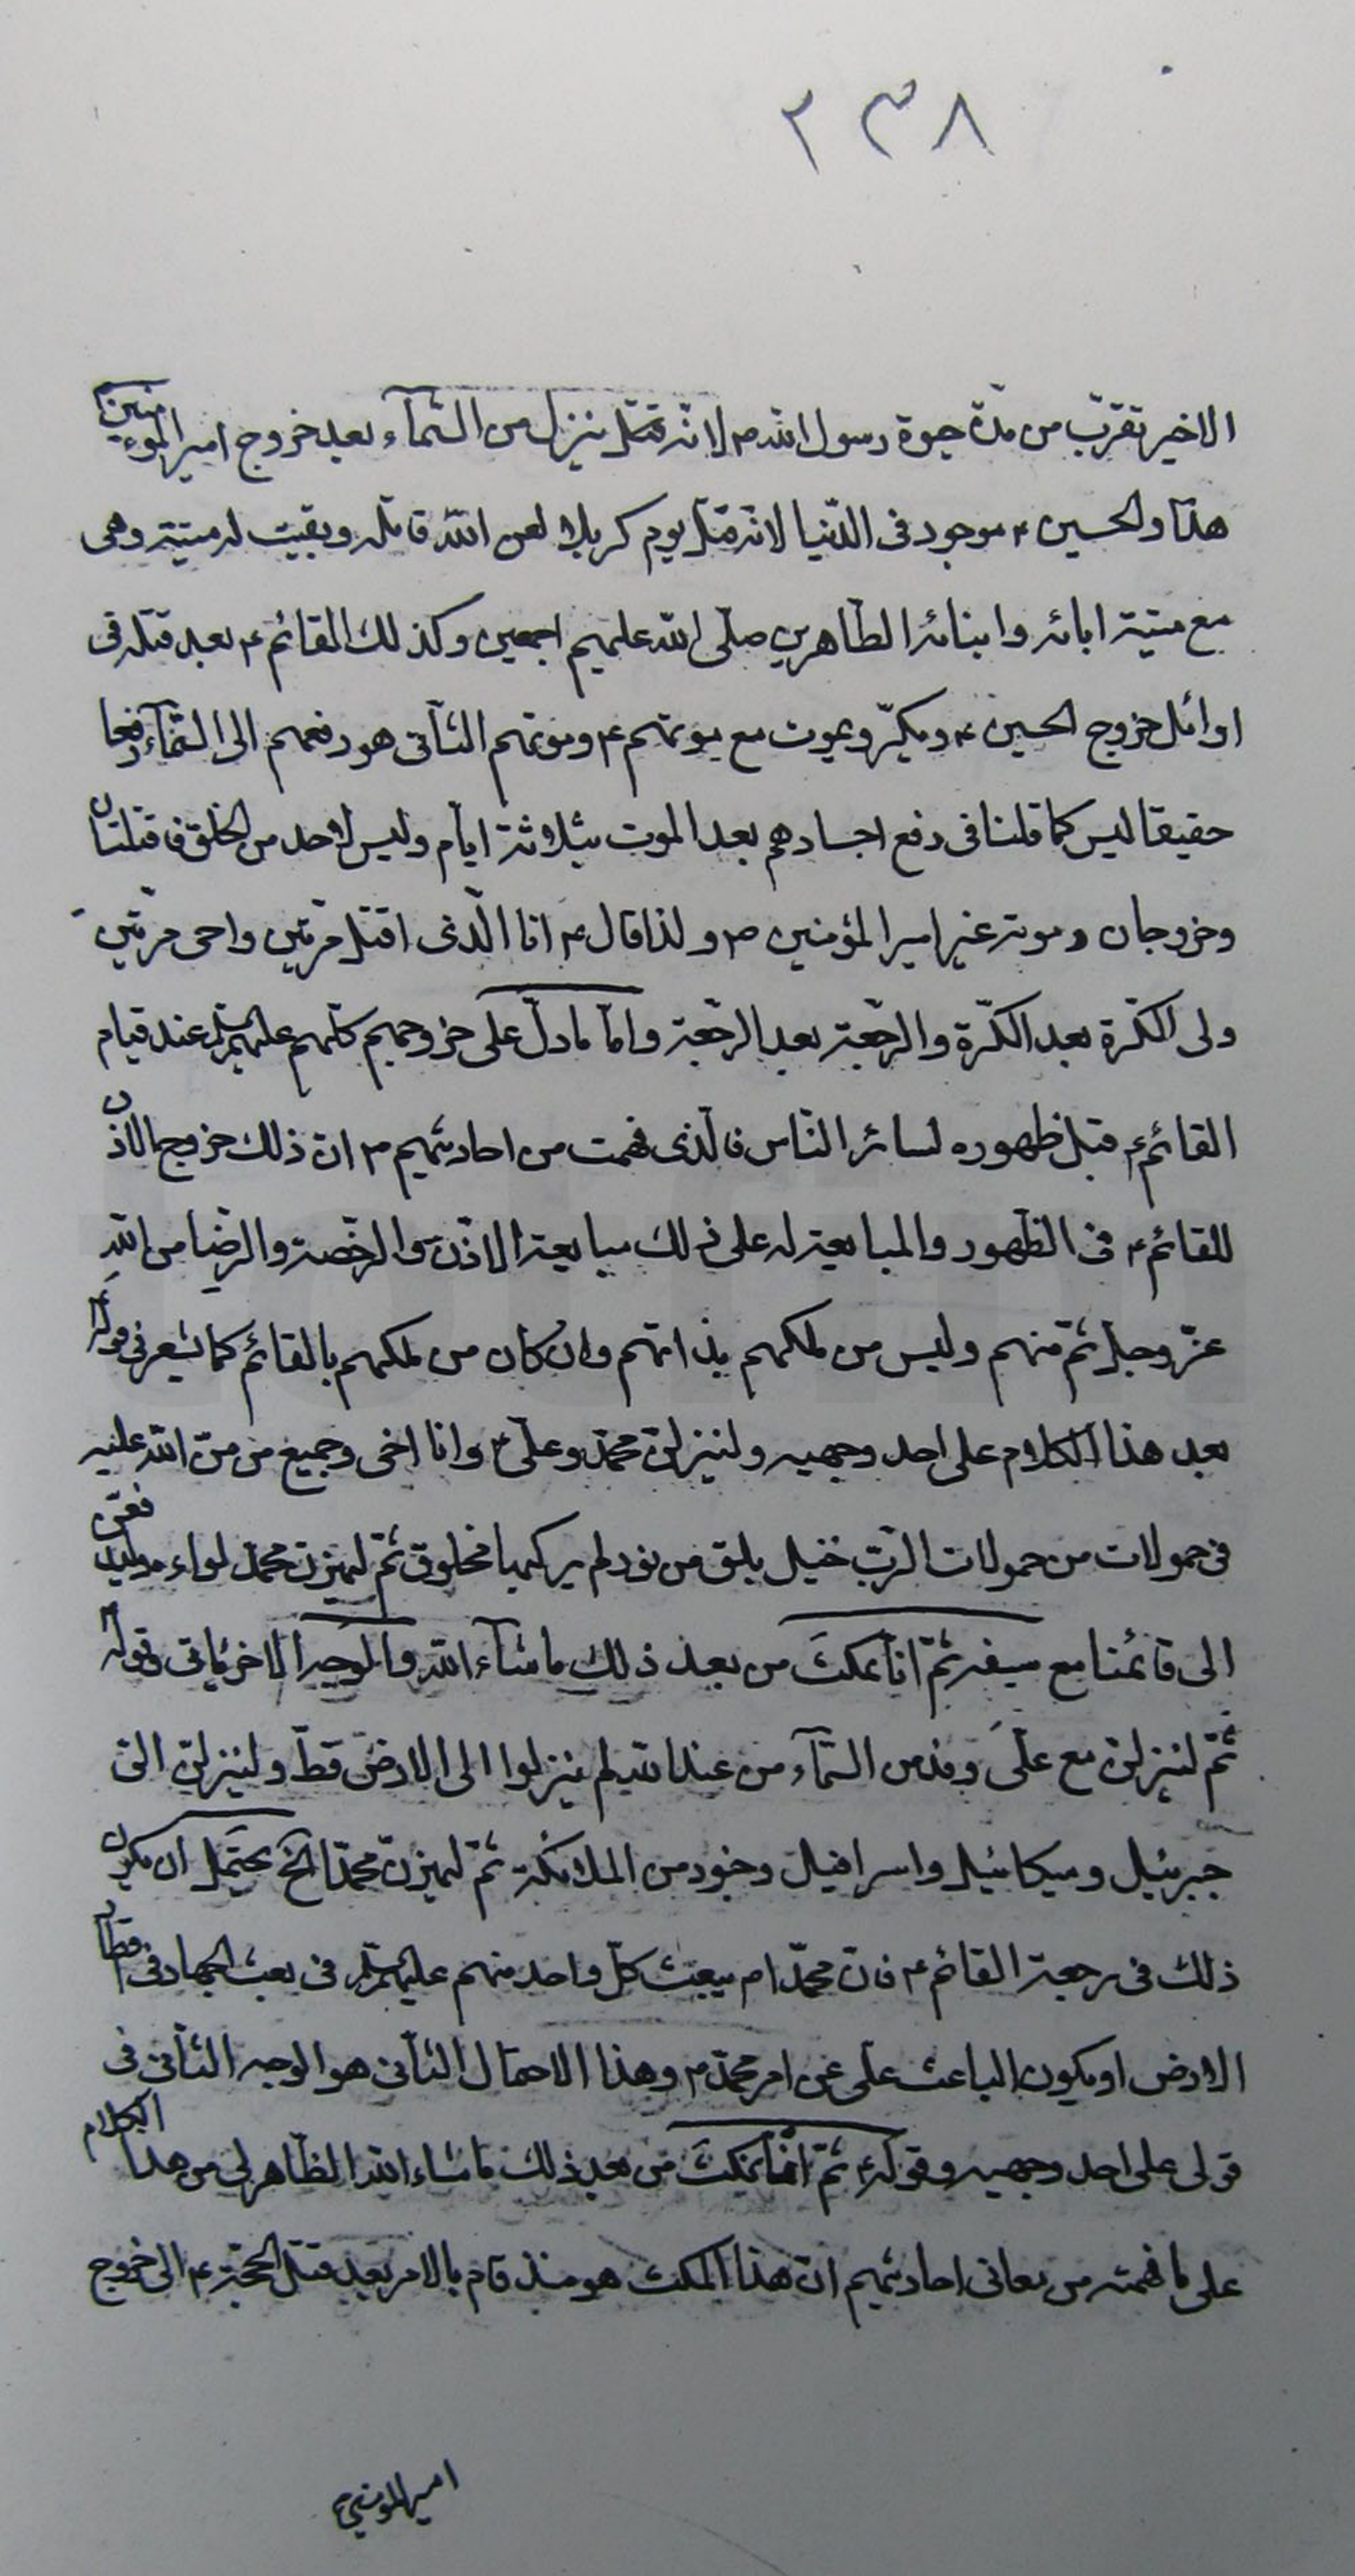 ٢٣٨
الاخير تقرب من مدّة حيوة رسول اللّه ص لانه ينزل من السّمآء بعد خروج امير المؤمنين
هذا والحسين ع موجود فى الدّنيا لانه قتل يوم كربلا لعن اللّه قاتله وبقيت له ميتة وهى
مع ميتة ابائه وابنائه الطّاهرين صلّى اللّه عليهم اجمعين وكذلك القائم ع بعد قتله فى
اوائل خروج الحسين ع ويكرّ ويموت مع موتهم ع وموتهم الثّانى هو رفعهم الى السّمآء رفعا
حقيقا ليس كما قلنا فى رفع اجسادهم بعد الموت بثلاثة ايّام وليس لاحد من الخلق قتلتان
وخروجان وموته غير امير المؤمنين ص ولذا قال ع انا الّذى اقتل مرّتين واحى مرّتين
ولى الكرّة بعد الكرّة والرّجعة بعد الرّجعة وامّا ما دلّ على خروجهم كلّهم عليهم السلم عند قيام
القائم ع قبل ظهوره لسائر النّاس فالّذى فهمت من احاديثهم ع انّ ذلك خروج الاذن
للقائم ع فى الظّهور والمبايعة له على ذلك مبايعة الاذن والرّخصة والرّضا من اللّه
عزّ وجلّ ثمّ منهم وليس من ملكهم بذاتهم وان كان من ملكهم بالقائم كما يشعر فى قوله
بعد هذا الكلام على احد وجهيه ولنيزلنّ محمّد وعلىّ ع وانا اخى وجميع من منّ اللّه عليه
فى حمولات من حمولات الرّبّ خيل بلق من نور لم يركبها مخلوق ثمّ ليهزنّ محمّد لواءه وليدفعنّه
الى قائمنا مع سيفه ثمّ انا نمكث من بعد ذلك ما شآء اللّه والوجه الاخر ياتى وقوله
ثمّ لينزلنّ مع علىّ وفد من السّمآء من عند اللّه لم ينزلوا الى الارض قطّ ولينزلنّ الىّ
جبرئيل وميكائيل واسرافيل وجنود من الملائكة ثمّ ليهزنّ محمّد الخ يحتمل ان يكون
ذلك فى رجعة القائم ع فانّ محمّدا ص يبعث كلّ واحد منهم عليهم السلم فى بعث الجهاد فى اقطار
الارض او يكون الباعث علىّ عن امر محمّد ص وهذا الاحتمال الثّانى هو الوجه الثّانى فى
قولى على احد وجهيه وقوله ع ثمّ انّا نمكث من بعد ذلك ما شاء اللّه الظّاهر لى من هذا الكلام
على ما فهمته من معانى احاديثهم انّ هذا المكث هو منذ قام بالامر بعد قتل الحجّة ع الى خروج
امير المؤمنين ع